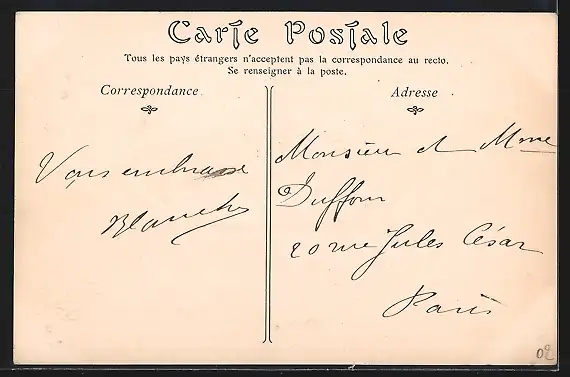 Carte Postale
Tous les pays étrangers n'acceptent pas la correspondance au recto.
Se renseigner à la poste.
Correspondance
Vous embrasse
Blanche
Adresse
Monsieur et Mme
Duffour
20 rue Jules César
Paris
02